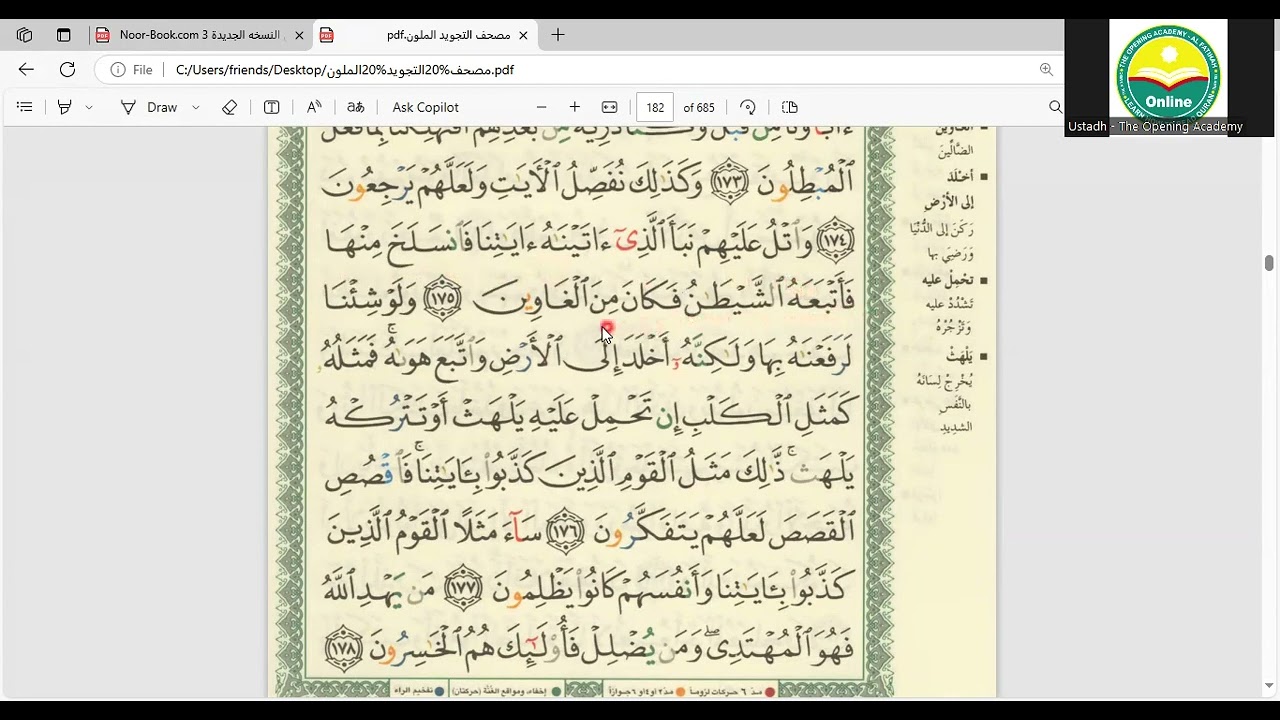 Noor-Book.com 3 النسخه الجديدة
مصحف التجويد الملون.pdf
File
C:/Users/friends/Desktop/مصحف%20التجويد%20الملون.pdf
Draw
Ask Copilot
182 of 685
THE OPENING ACADEMY - AL FATIHAH
Online
Ustadh - The Opening Academy
ٱلْمُبْطِلُونَ ١٧٣ وَكَذَٰلِكَ نُفَصِّلُ ٱلْءَايَٰتِ وَلَعَلَّهُمْ يَرْجِعُونَ
١٧٤ وَٱتْلُ عَلَيْهِمْ نَبَأَ ٱلَّذِىٓ ءَاتَيْنَٰهُ ءَايَٰتِنَا فَٱنسَلَخَ مِنْهَا
فَأَتْبَعَهُ ٱلشَّيْطَٰنُ فَكَانَ مِنَ ٱلْغَاوِينَ ١٧٥ وَلَوْ شِئْنَا
لَرَفَعْنَٰهُ بِهَا وَلَٰكِنَّهُۥٓ أَخْلَدَ إِلَى ٱلْأَرْضِ وَٱتَّبَعَ هَوَىٰهُ ۚ فَمَثَلُهُۥ
كَمَثَلِ ٱلْكَلْبِ إِن تَحْمِلْ عَلَيْهِ يَلْهَثْ أَوْ تَتْرُكْهُ
يَلْهَث ۚ ذَّٰلِكَ مَثَلُ ٱلْقَوْمِ ٱلَّذِينَ كَذَّبُوا۟ بِـَٔايَٰتِنَا ۚ فَٱقْصُصِ
ٱلْقَصَصَ لَعَلَّهُمْ يَتَفَكَّرُونَ ١٧٦ سَآءَ مَثَلًا ٱلْقَوْمُ ٱلَّذِينَ
كَذَّبُوا۟ بِـَٔايَٰتِنَا وَأَنفُسَهُمْ كَانُوا۟ يَظْلِمُونَ ١٧٧ مَن يَهْدِ ٱللَّهُ
فَهُوَ ٱلْمُهْتَدِى ۖ وَمَن يُضْلِلْ فَأُو۟لَٰٓئِكَ هُمُ ٱلْخَٰسِرُونَ ١٧٨
الضَّالِّينَ
أَخْلَدَ
إلى الأَرْضِ
رَكَنَ إلى الدُّنْيَا
وَرَضِيَ بها
تَحْمِلْ عليه
تَشْدُدْ عليه
وَتَزْجُرْهُ
يَلْهَثْ
يُخْرِجْ لِسَانَهُ
بالنَّفَسِ
الشديدِ
مدّ ٦ حركات لزوماً مدّ٢ أو٤ أو ٦ جوازاً إخفاء، ومواقع الغُنَّة (حركتان) تفخيم الراء